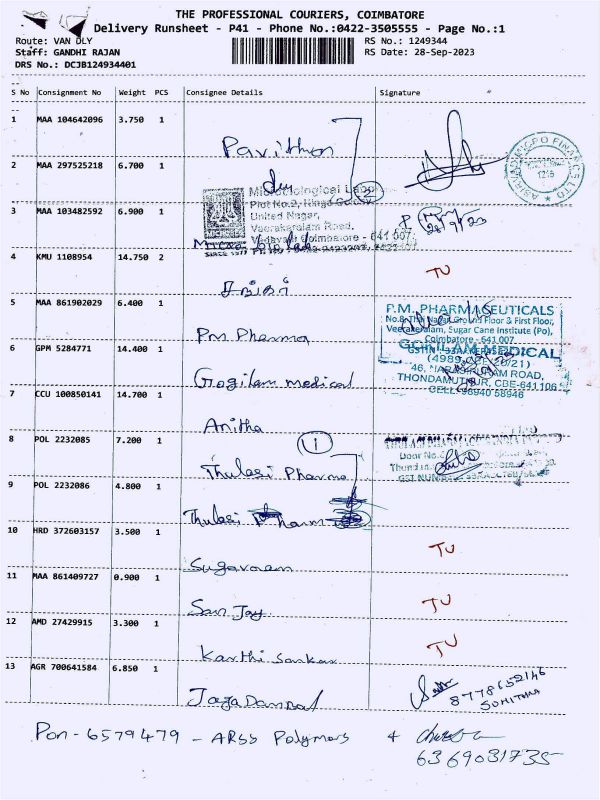 THE PROFESSIONAL COURIERS, COIMBATORE
Delivery Runsheet - P41 - Phone No.:0422-3505555 - Page No.:1
Route: VAN DLY
RS No.: 1249344
Staff: GANDHI RAJAN
RS Date: 28-Sep-2023
DRS No.: DCJB124934401
S No Consignment No Weight PCS Consignee Details Signature
1 MAA 104642096 3.750 1 Pavithra
2 MAA 297525218 6.700 1 du
Microbiological Labo
Plot No.2, Kings Colony
United Nagar,
Veerakeralam Road,
Vadavalli Coimbatore - 641 007.
SINCE 1977
3 MAA 103482592 6.900 1 Micro bio lab
4 KMU 1108954 14.750 2 TU
5 MAA 861902029 6.400 1 Pm Pharma
P.M. PHARMACEUTICALS
Ground Floor & First Floor,
Veerakeralam, Sugar Cane Institute (Po),
Coimbatore - 641 007
6 GPM 5284771 14.400 1 Gogilam medical
GOKILAM MEDICAL
ROAD,
THONDAMUTHUR, CBE-641 106
CELL: 96940 58946
7 CCU 100850141 14.700 1 Anitha
8 POL 2232085 7.200 1 Thulasi Pharma
9 POL 2232086 4.800 1 Thulasi Pharma
10 HRD 372603157 3.500 1 Sugavanam TU
11 MAA 861409727 0.900 1 San Jay TU
12 AMD 27429915 3.300 1 Karthi Sankar TU
13 AGR 700641584 6.850 1 8778652146
SUMITHRA
Pon - 6579479 - ARSS Polymars
6369031735